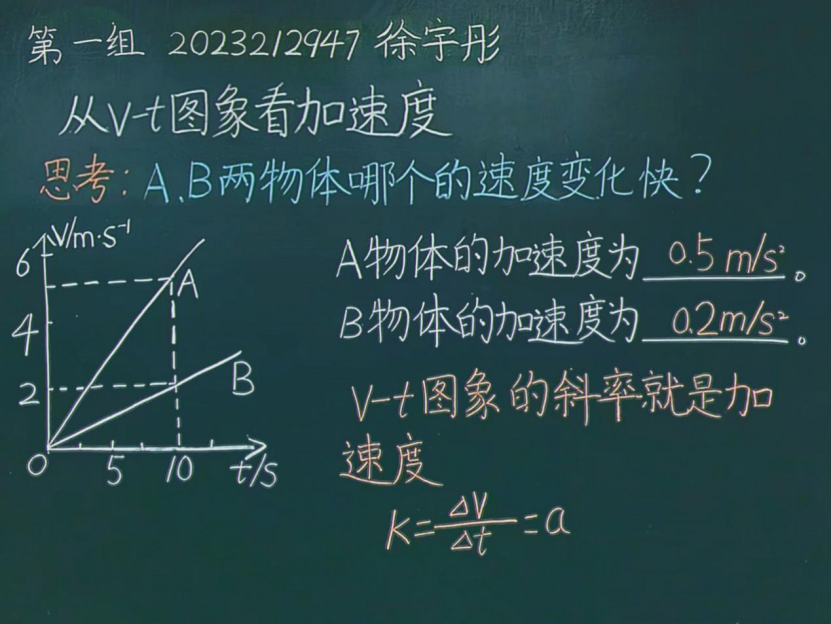 第一组 2023212947 徐宇彤
从v-t图象看加速度
思考：A、B两物体哪个的速度变化快？
V/m·s⁻¹
6
4
2
0
5
10
t/s
A
B
A物体的加速度为 0.5 m/s²。
B物体的加速度为 0.2m/s²。
V-t图象的斜率就是加
速度
K=ΔV/Δt=a